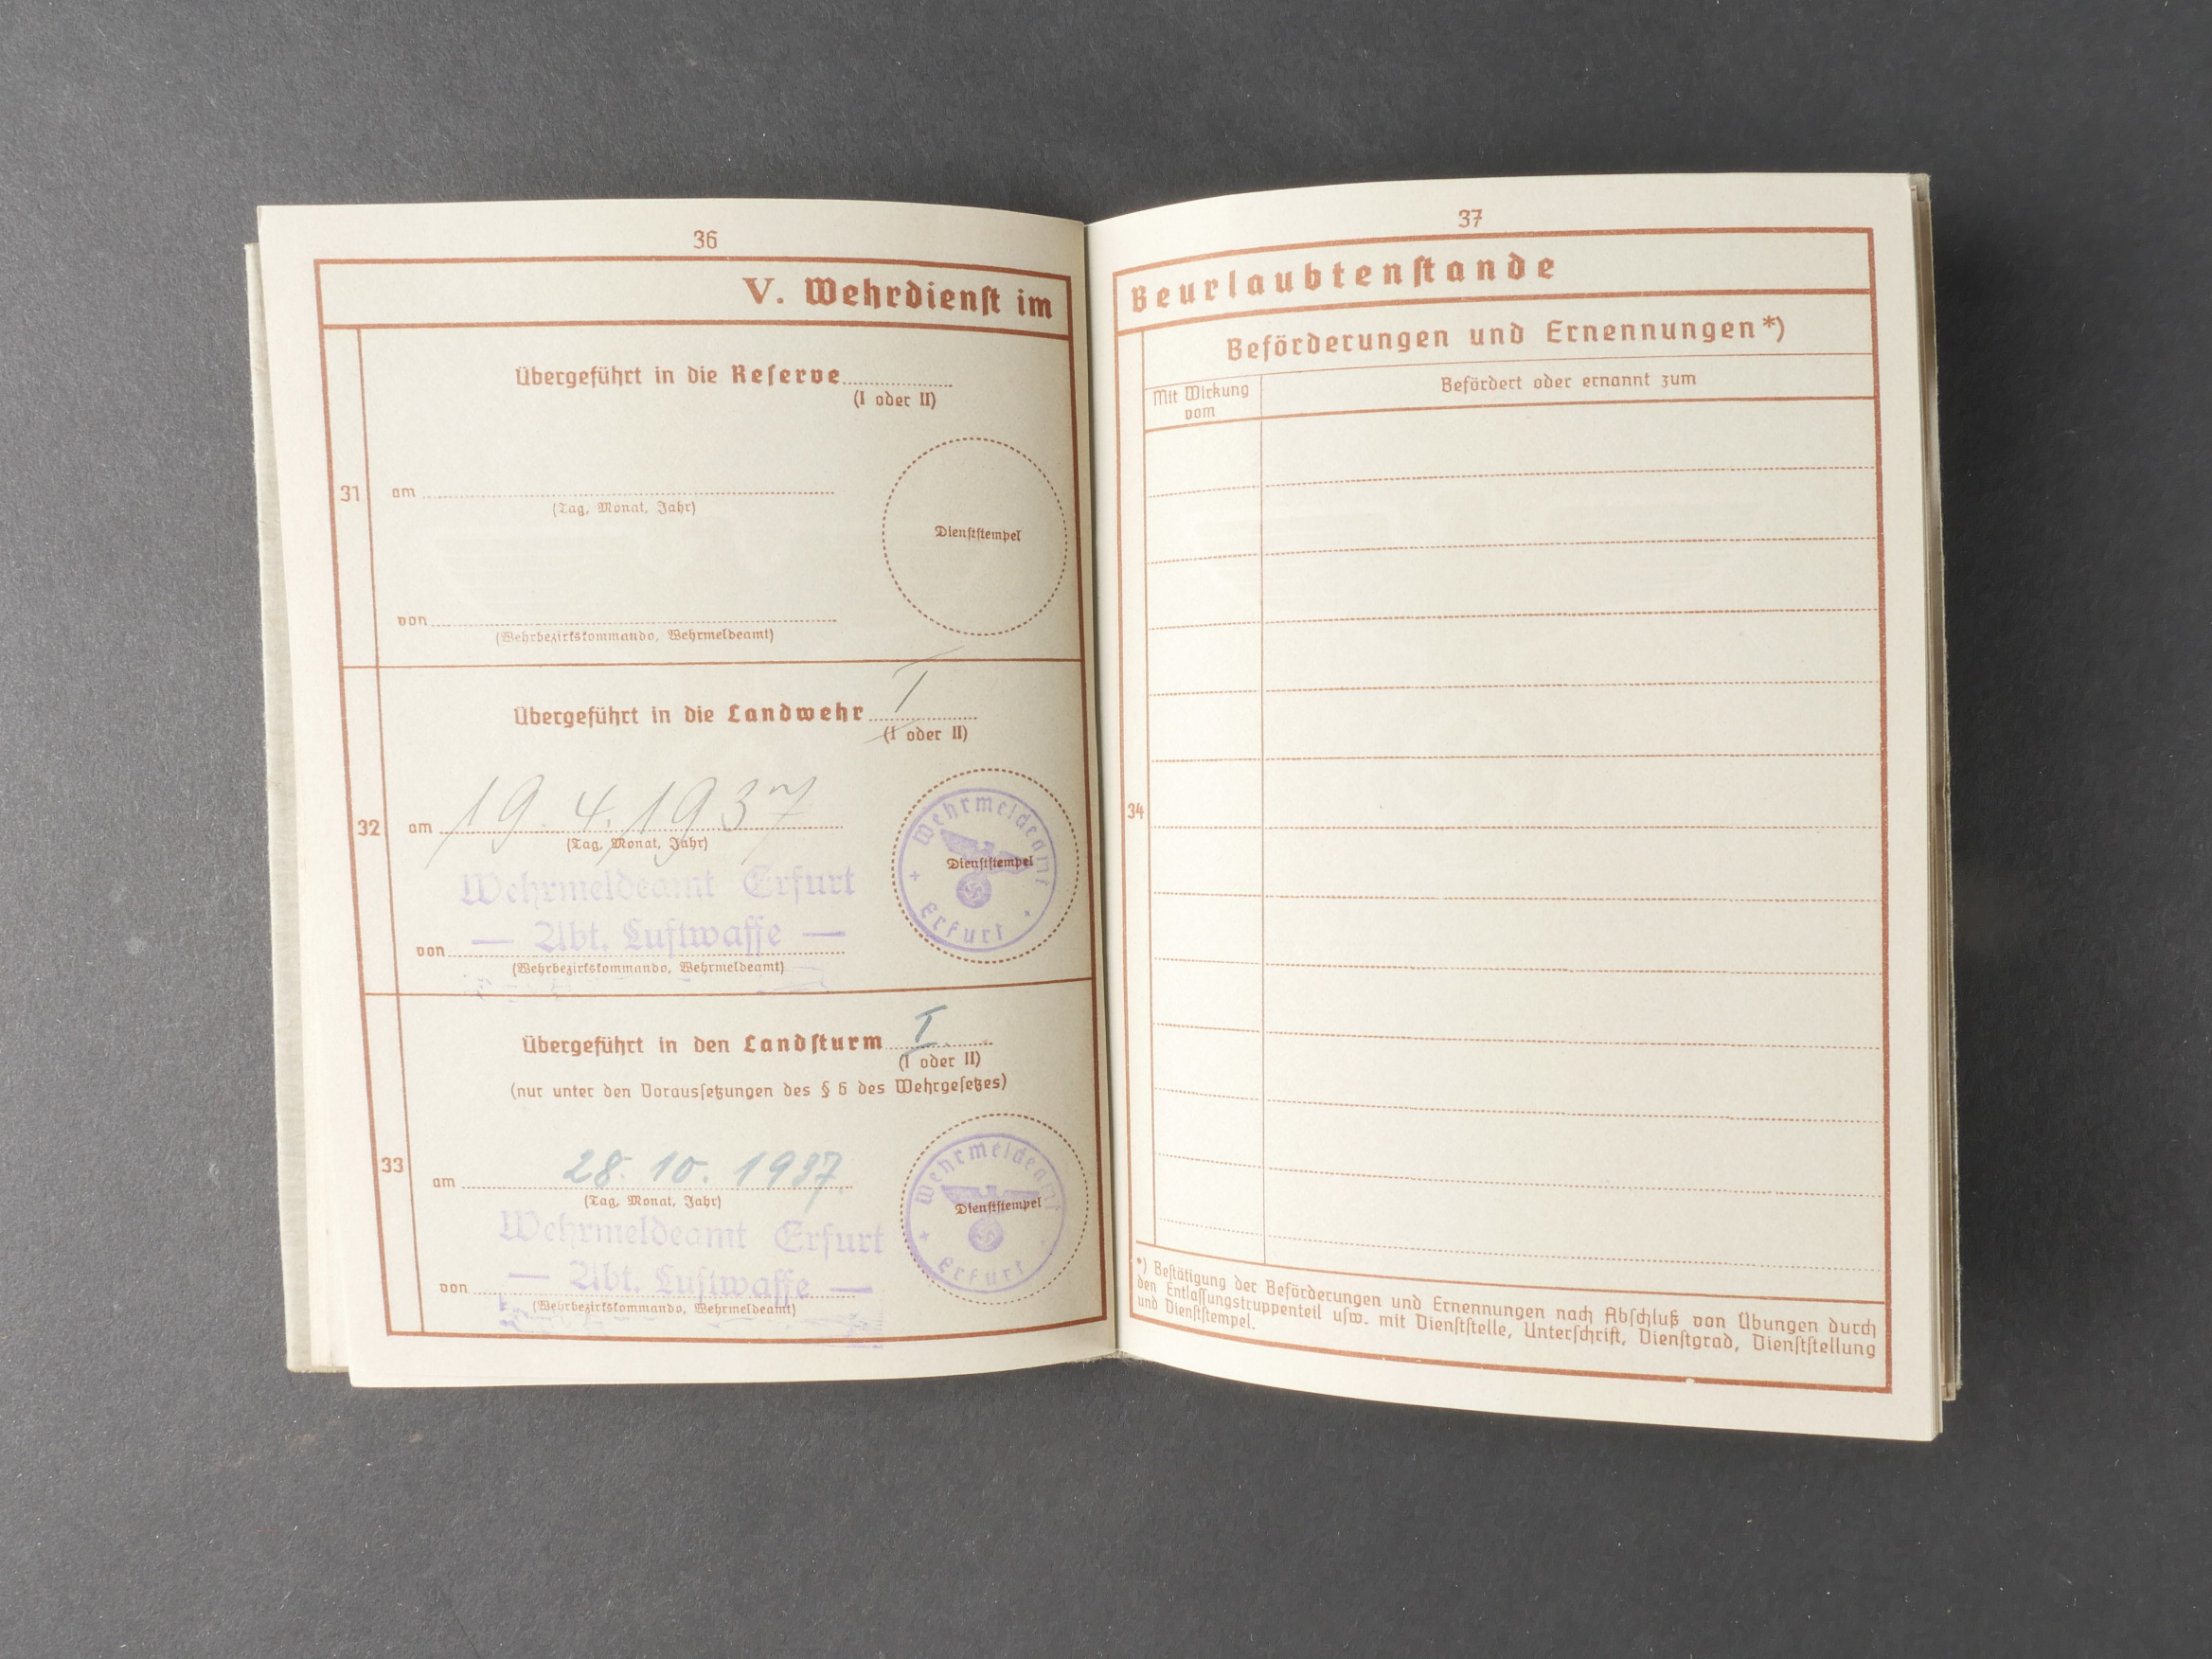 36
V. Wehrdienst im
31
Übergeführt in die Reserve
(I oder II)
am
(Tag, Monat, Jahr)
Dienststempel
von
(Wehrbezirkskommando, Wehrmeldeamt)
32
Übergeführt in die Landwehr I
(I oder II)
am 19.4.1937
(Tag, Monat, Jahr)
Wehrmeldeamt Erfurt
— Abt. Luftwaffe —
von
(Wehrbezirkskommando, Wehrmeldeamt)
Wehrmeldeamt
Dienststempel
+ Erfurt +
33
Übergeführt in den Landsturm I
(I oder II)
(nur unter den Voraussetzungen des § 6 des Wehrgesetzes)
am 28.10.1937
(Tag, Monat, Jahr)
Wehrmeldeamt Erfurt
— Abt. Luftwaffe —
von
(Wehrbezirkskommando, Wehrmeldeamt)
Wehrmeldeamt
Dienststempel
+ Erfurt
37
Beurlaubtenstande
Beförderungen und Ernennungen*)
Mit Wirkung
vom
Befördert oder ernannt zum
34
*) Bestätigung der Beförderungen und Ernennungen nach Abschluß von Übungen durch
den Entlassungstruppenteil usw. mit Dienststelle, Unterschrift, Dienstgrad, Dienststellung
und Dienststempel.